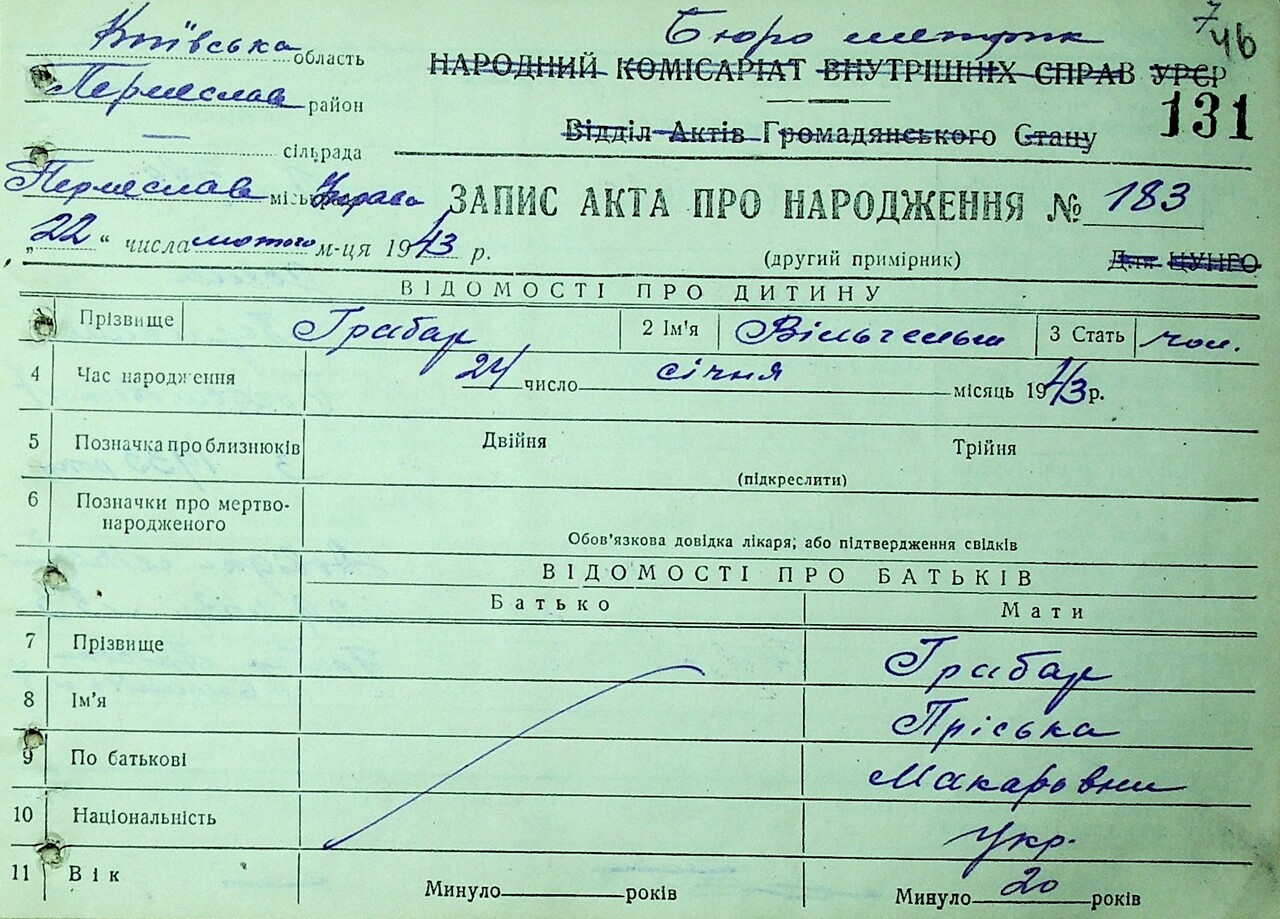 Київська область
Бюро метрик
7
46
НАРОДНИЙ КОМІСАРІАТ ВНУТРІШНІХ СПРАВ УРСР
Переяслав район
131
Відділ Актів Громадянського Стану
— сільрада
Переяслав міськ Управа
ЗАПИС АКТА ПРО НАРОДЖЕННЯ № 183
„22“ числа лютого м-ця 1943 р.
(другий примірник)
Для ЦУНГО
ВІДОМОСТІ ПРО ДИТИНУ
Прізвище Грабар 2 Ім'я Вільгельм 3 Стать чол.
4 Час народження 24 число січня місяць 1943 р.
5 Позначка про близнюків Двійня Трійня
(підкреслити)
6 Позначки про мертво-
народженого
Обов'язкова довідка лікаря; або підтвердження свідків
ВІДОМОСТІ ПРО БАТЬКІВ
Батько Мати
7 Прізвище Грабар
8 Ім'я Пріська
9 По батькові Макаровни
10 Національність укр.
11 Вік Минуло років Минуло 20 років